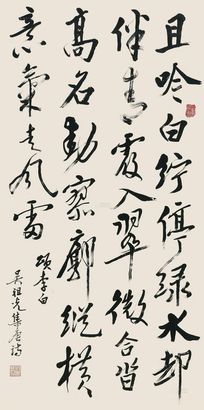 且吟白紵停绿水却
伴青霞入翠微合沓
高名动寥廓纵横
意气走风雷
颂李白
吴祖光集唐诗